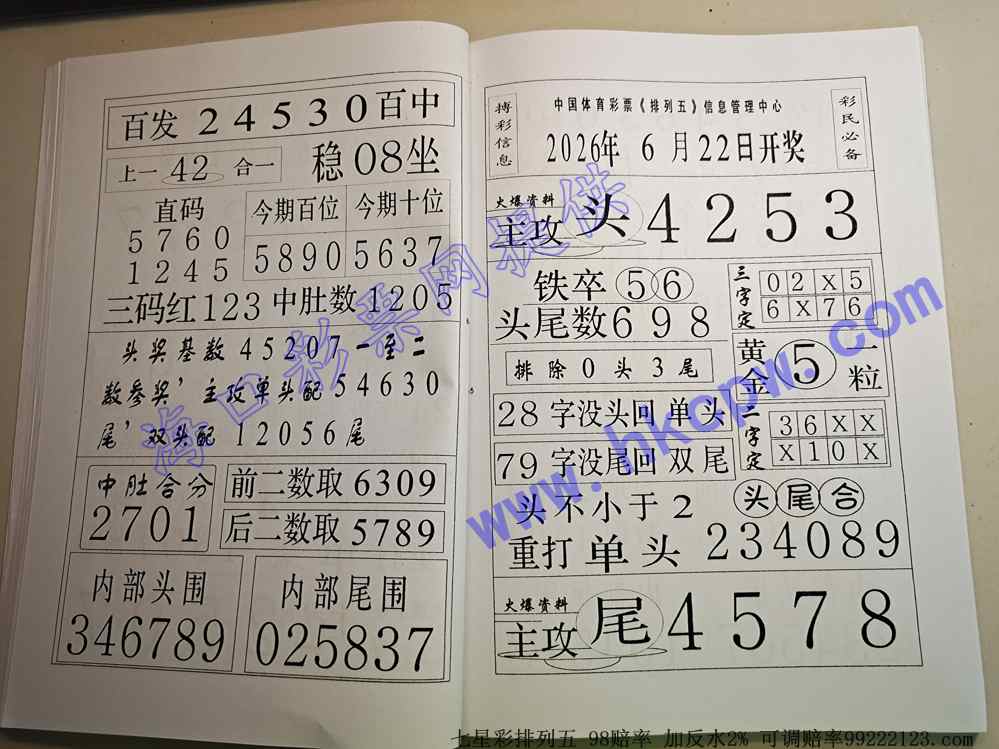 百发 24530 百中
上一 42 合一
稳 08 坐
直码
5 7 6 0
1 2 4 5
今期百位
5890
今期十位
5637
三码红123 中肚数1205
头奖基数45207一至二
数参奖’主攻单头配54630
尾’双头配12056尾
中肚合分
2701
前二数取6309
后二数取5789
内部头围
346789
内部尾围
025837
搏彩信息
中国体育彩票《排列五》信息管理中心
2026年 6 月 22日开奖
彩民必备
火爆资料
主攻 头 4 2 5 3
铁卒 5 6
头尾数 6 9 8
三字定
0 2 X 5
6 X 7 6
排除 0 头 3 尾
黄金 5 一粒
28 字没头回 单头
79 字没尾回 双尾
二字定
3 6 X X
X 1 0 X
头不小于 2
头尾合
重打单头 234089
火爆资料
主攻 尾 4 5 7 8
海口彩票网提供
www.hkcpw.com
七星彩排列五 98赔率 加反水2% 可调赔率99222123.com